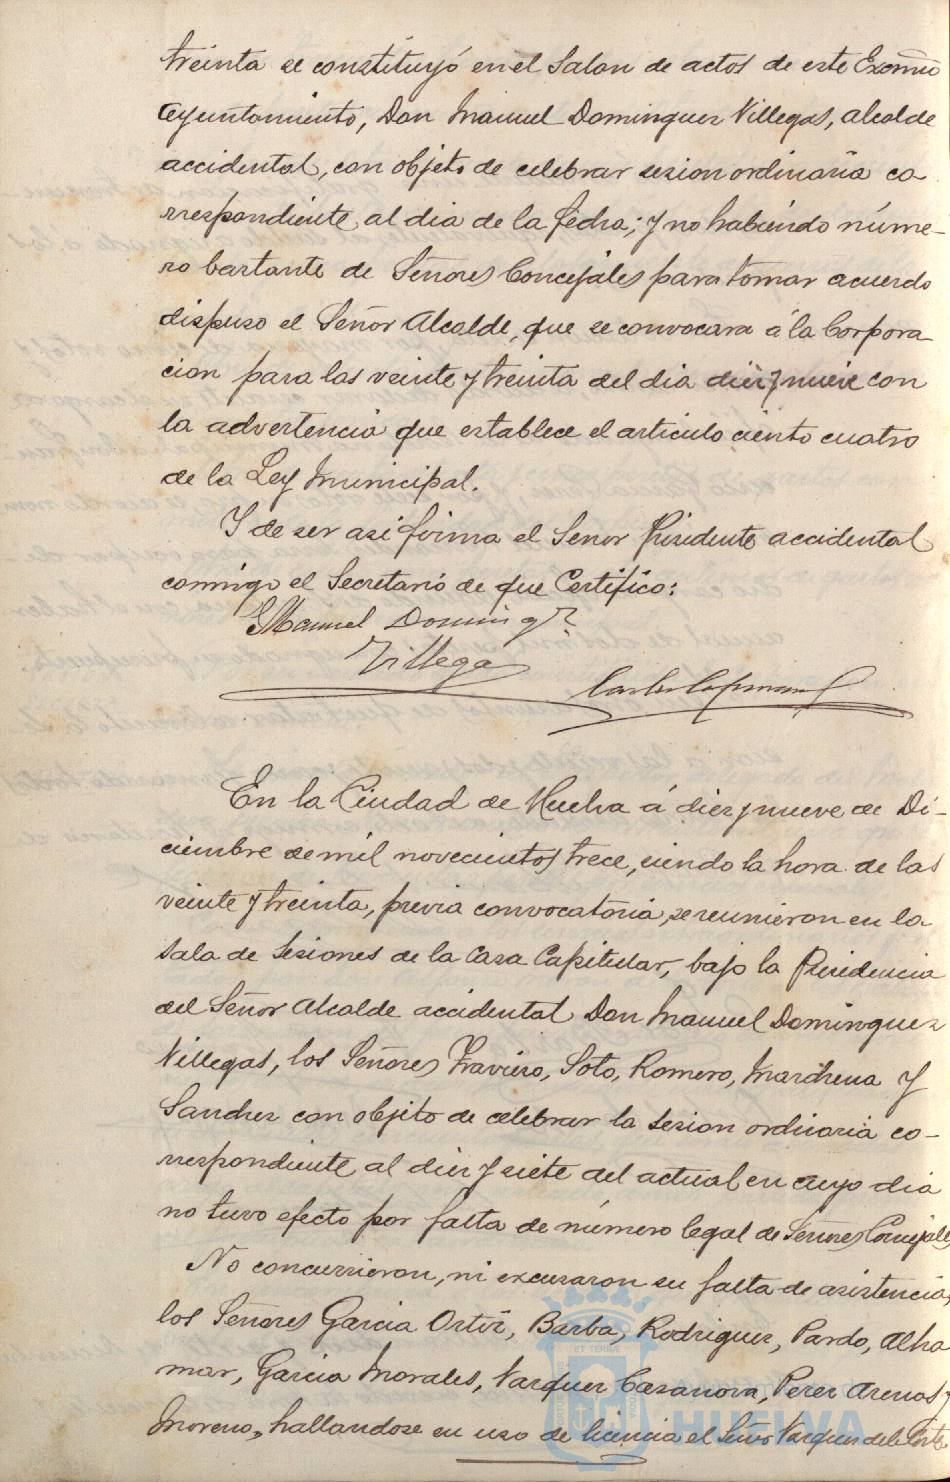 treinta se constituyó en el Salon de actos de este Excmo
Ayuntamiento, Don Manuel Dominguez Villegas, alcalde
accidental, con objeto de celebrar sesion ordinaria co-
rrespondiente al dia de la fecha; y no habiendo núme-
ro bastante de Señores Concejales para tomar acuerdo
dispuso el Señor Alcalde, que se convocara á la Corpora
cion para las veinte y treinta del dia diez y nueve con
la advertencia que establece el articulo ciento cuatro
de la Ley Municipal.
Y de ser asi firma el Señor Presidente accidental
conmigo el Secretario de que Certifico:
Manuel Domingz
Villegas
En la Ciudad de Huelva á diez y nueve de Di-
ciembre de mil novecientos trece, siendo la hora de las
veinte y treinta, previa convocatoria, se reunieron en la
Sala de Sesiones de la Casa Capitular, bajo la Presidencia
del Señor Alcalde accidental Don Manuel Dominguez
Villegas, los Señores Traviero, Soto, Romero, Marchena y
Sanchez con objeto de celebrar la sesion ordinaria co-
rrespondiente al diez y siete del actual en cuyo dia
no tuvo efecto por falta de número legal de Señores Concejales
No concurrieron, ni excusaron su falta de asistencia,
los Señores Garcia Ortiz, Barba, Rodriguez, Pardo, Alha
mar, Garcia Morales, Vazquez Casanova, Perez Arenas y
Moreno, hallandose en uso de licencia el Señor Vazquez de la Corte
HUELVA